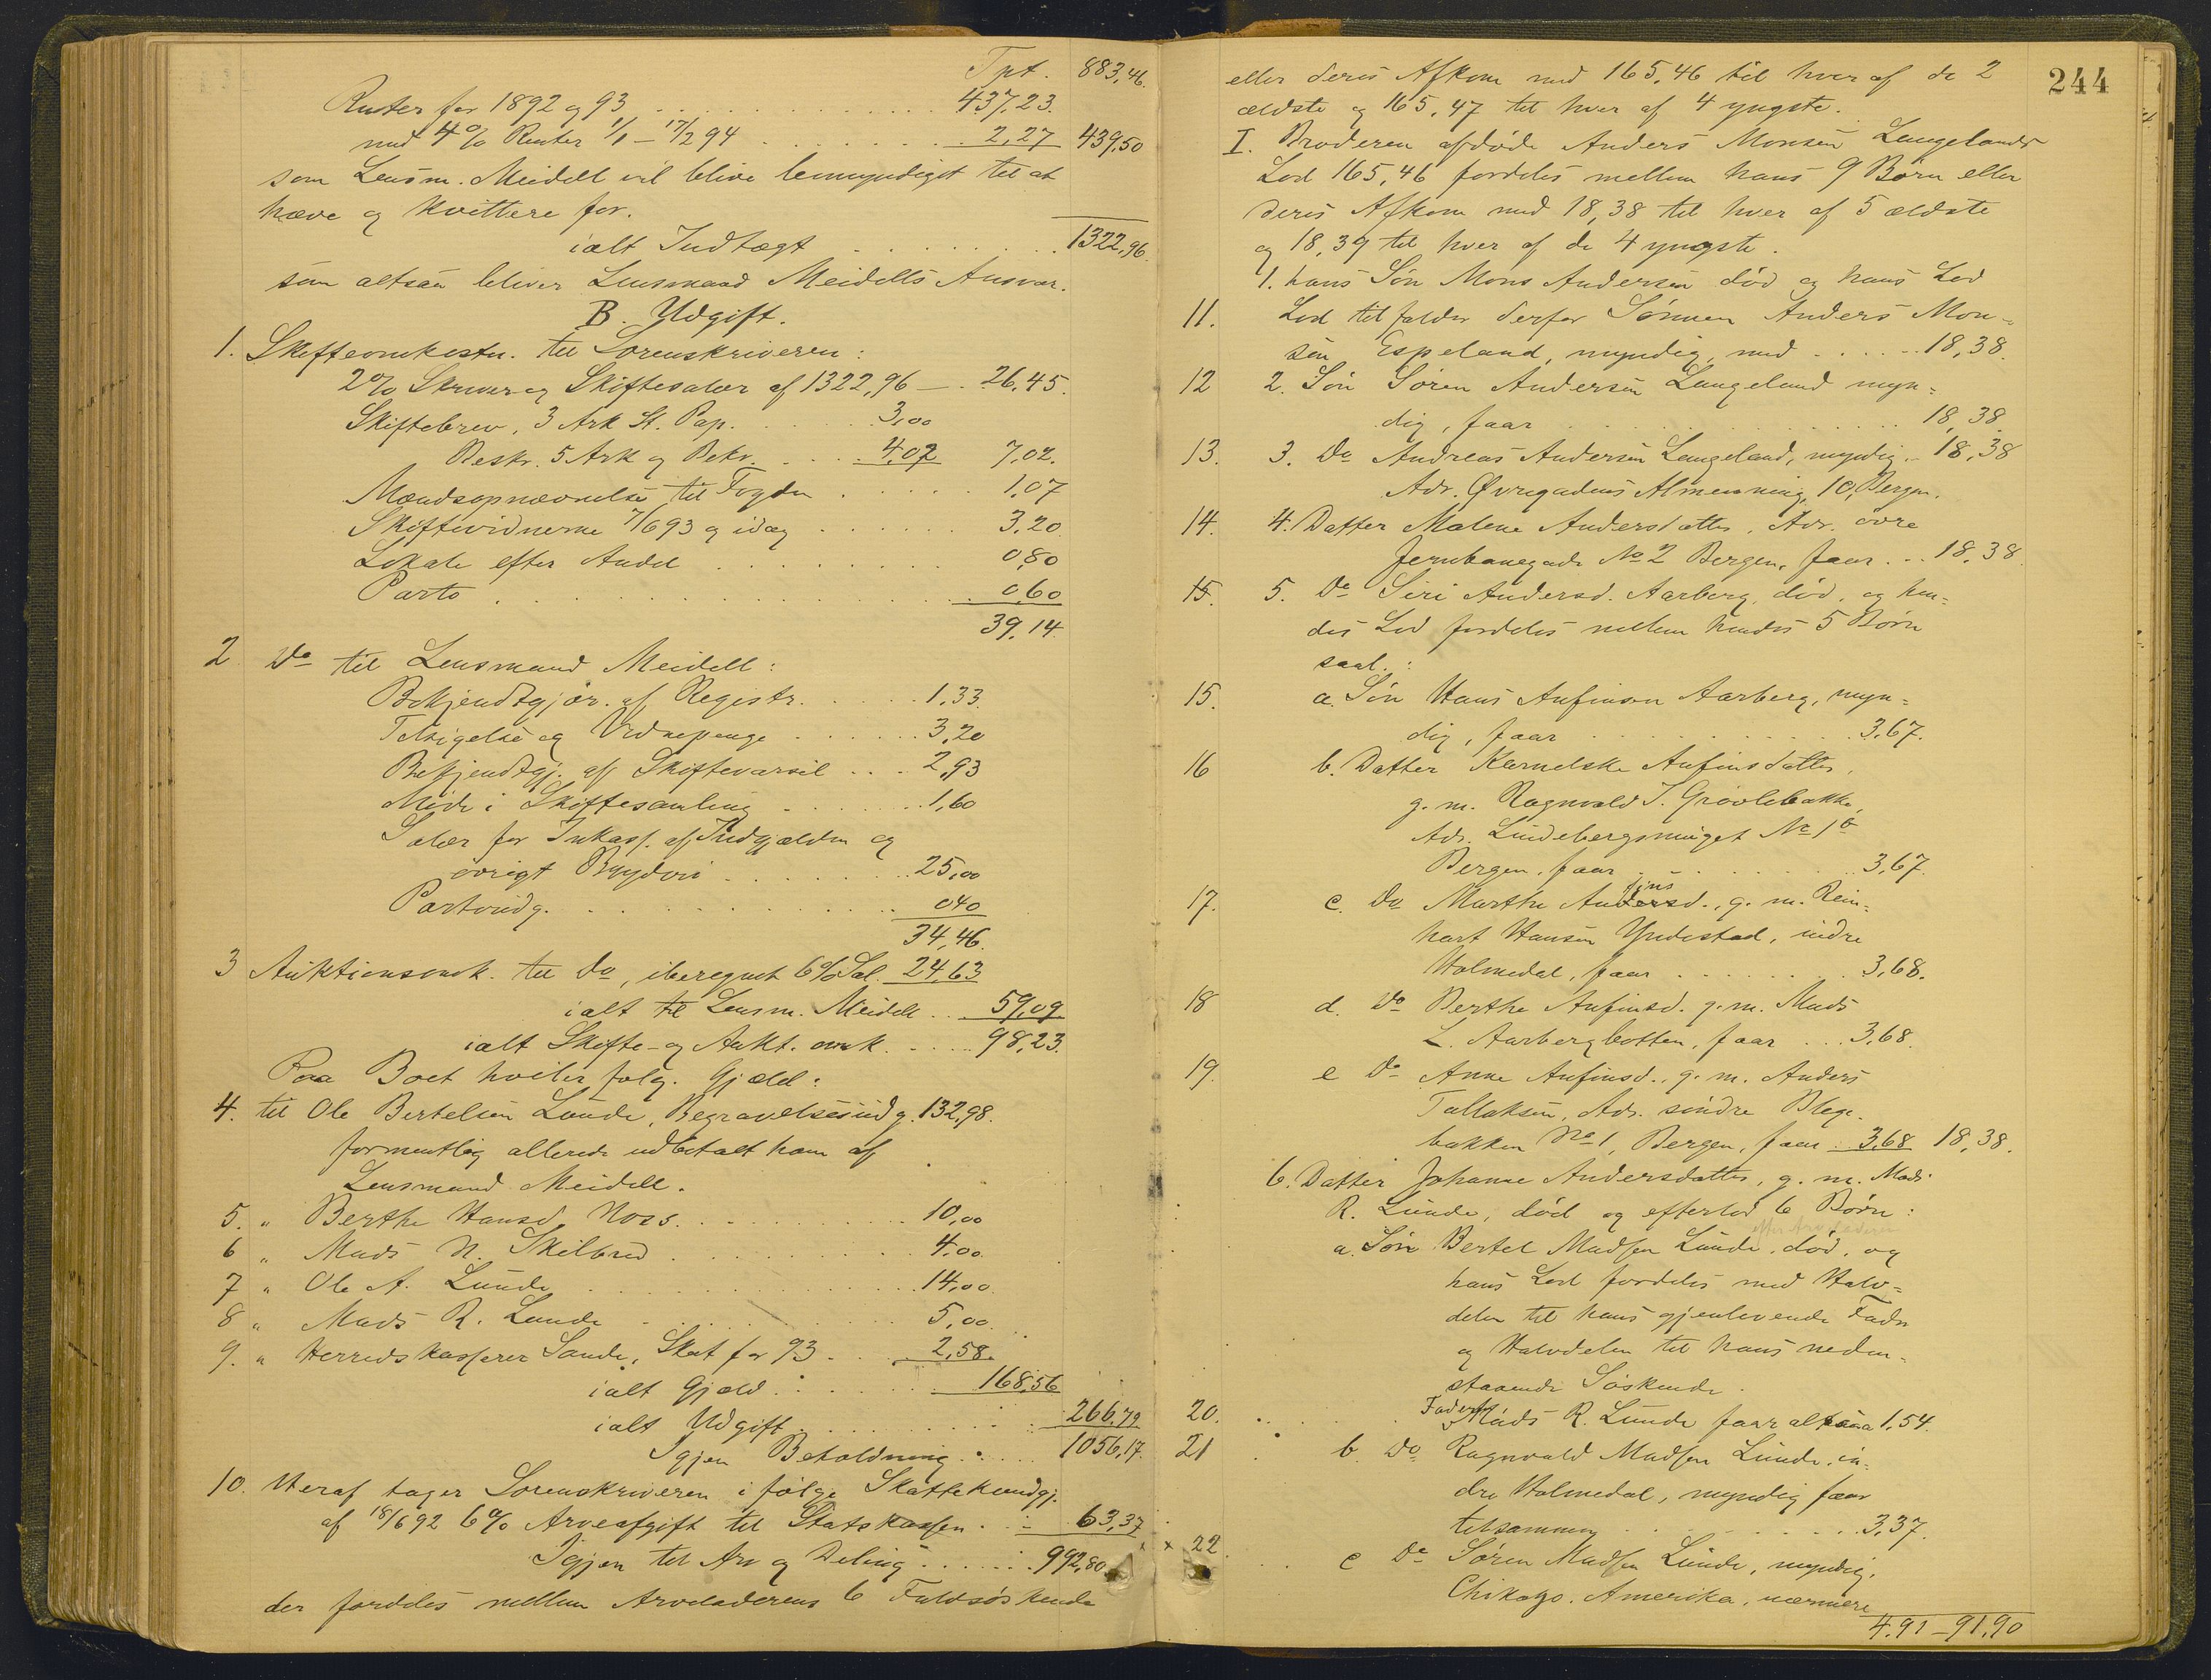 Tpt. 883,46.
Renter for 1892 og 93 . . . 437,23.
med 4% Renter 1/1 – 17/2 94 . . . 2,27 439,50
som Lensm. Meidell vil blive bemyndiget til at
hæve og kvittere for.
ialt Indtægt . . . 1322,96.
som altsaa bliver Lensmand Meidells Ansvar.
B. Udgift.
1. Skifteomkostn. til Sorenskriveren:
2% Skriver og Skiftesalær af 1322,96 — . 26,45.
Skiftebrev, 3 Ark St. Pap. . . . 3,00
Beskr. 5 Ark og Bekr. . . . 4,02 7,02.
Mændsopnævnelse til Fogden . . . 1,07
Skiftevidnerne 7/6 93 og idag . . . 3,20
Lokale efter Andel . . . 0,80
Porto . . . 0,60
39,14
2 Do til Lensmand Meidell:
Bekjendtgjør. af Registr. . . . 1,33.
Tilsigelse og Vidnepenge . . . 3,20
Bekjendtgj. af Skiftevarsel . . . 2,93
Møde i Skiftesamling . . . 1,60
Salær for Inkass. af Indgjælden og
øvrigt Bryderi . . . 25,00
Portoudg. . . . 0,40
34,46.
3 Auktionsomk. til Do, iberegnet 6% Sal. 24,63
ialt til Lensm. Meidell . . 59,09.
ialt Skifte- og Aukt. omk. . . . 98,23.
Paa Boet hviler følg. Gjæld:
4. til Ole Bertelsen Lunde, Begravelsesudg. 132,98.
formentlig allerede udbetalt ham af
Lensmand Meidell.
5. " Berthe Hansd. Noss. . . . 10,00
6 " Mads N. Skilbred . . . 4,00.
7 " Ole A. Lunde . . . 14,00.
8 " Mads R. Lunde . . . 5,00.
9. " Herredskasserer Sande, Skat for 93 . . . 2,58.
ialt Gjæld . . . 168,56
ialt Udgift . . . 266,79
Igjen Beholdning . . . 1056,17.
10. Heraf tager Sorenskriveren i følge Skattekundgj.
af 18/6 92 6% Arveafgift til Statskassen . . . 63,37
Igjen til Arv og Deling . . . 992,80
der fordeles mellem Arveladerens 6 Fuldsøskende
244
eller deres Afkom med 165,46 til hver af de 2
ældste og 165,47 til hver af 4 yngste.
I. Broderen afdøde Anders Monsen Langelands
Lod 165,46 fordeles mellem hans 9 Børn eller
deres Afkom med 18,38 til hver af 5 ældste
og 18,39 til hver af de 4 yngste.
1. hans Søn Mons Andersen død og hans Lod
11. Lod tilfalder derfor Sønnen Anders Mon=
sen Espeland, myndig, med . . . 18,38.
12 2. Søn Søren Andersen Langeland myn=
dig, faar . . . 18,38.
13. 3. Do Andreas Andersen Langeland, myndig. - 18,38
Adr. Øvregadens Almenning, 10, Bergen.
14. 4. Datter Malene Andersdatter, Adr. øvre
Jernbanegade No 2 Bergen, faar . . 18,38.
15. 5. Do Siri Andersd. Aarberg, død, og hen=
des Lod fordeles mellem hendes 5 Børn
saal.:
15. a. Søn Hans Anfinsen Aarberg, myn=
dig, faar . . . 3,67.
16 b. Datter Karnelske Anfinsdatter,
g. m. Ragnvald T. Grøvlebakke,
Adr. Lindebergsmuget No 1b
Bergen, faar . . . 3,67.
17. c. Do Marthe Andersd. fins, g. m. Rein=
hart Hansen Yndestad, indre
Holmedal, faar . . . 3,68.
18 d. Do Berthe Anfinsd. g. m. Mads
L. Aarbergbotten, faar . . . 3,68.
19. e Do Anne Anfinsd., g. m. Anders
Tollaksen, Adr. søndre Blege-
bakken No 1, Bergen, faar . 3,68 18,38.
6. Datter Johanne Andersdatter, g. m. Mads
R. Lunde, død og efterlod 6 Børn:
efter Arveladeren
a. Søn Bertel Madsen Lunde, død, og
hans Lod fordeles med Halv=
delen til hans gjenlevende Fader
og Halvdelen til hans neden=
staaende Søskende.
20. Faderen Mads R. Lunde faar altsaa 1,54.
21 b. Do Ragnvald Madsen Lunde, in=
dre Holmedal, myndig faar
tilsammen . . . 3,37.
x 22. c Do Søren Madsen Lunde, myndig,
Chikago, Amerika, nærmere
4,91 – 91,90